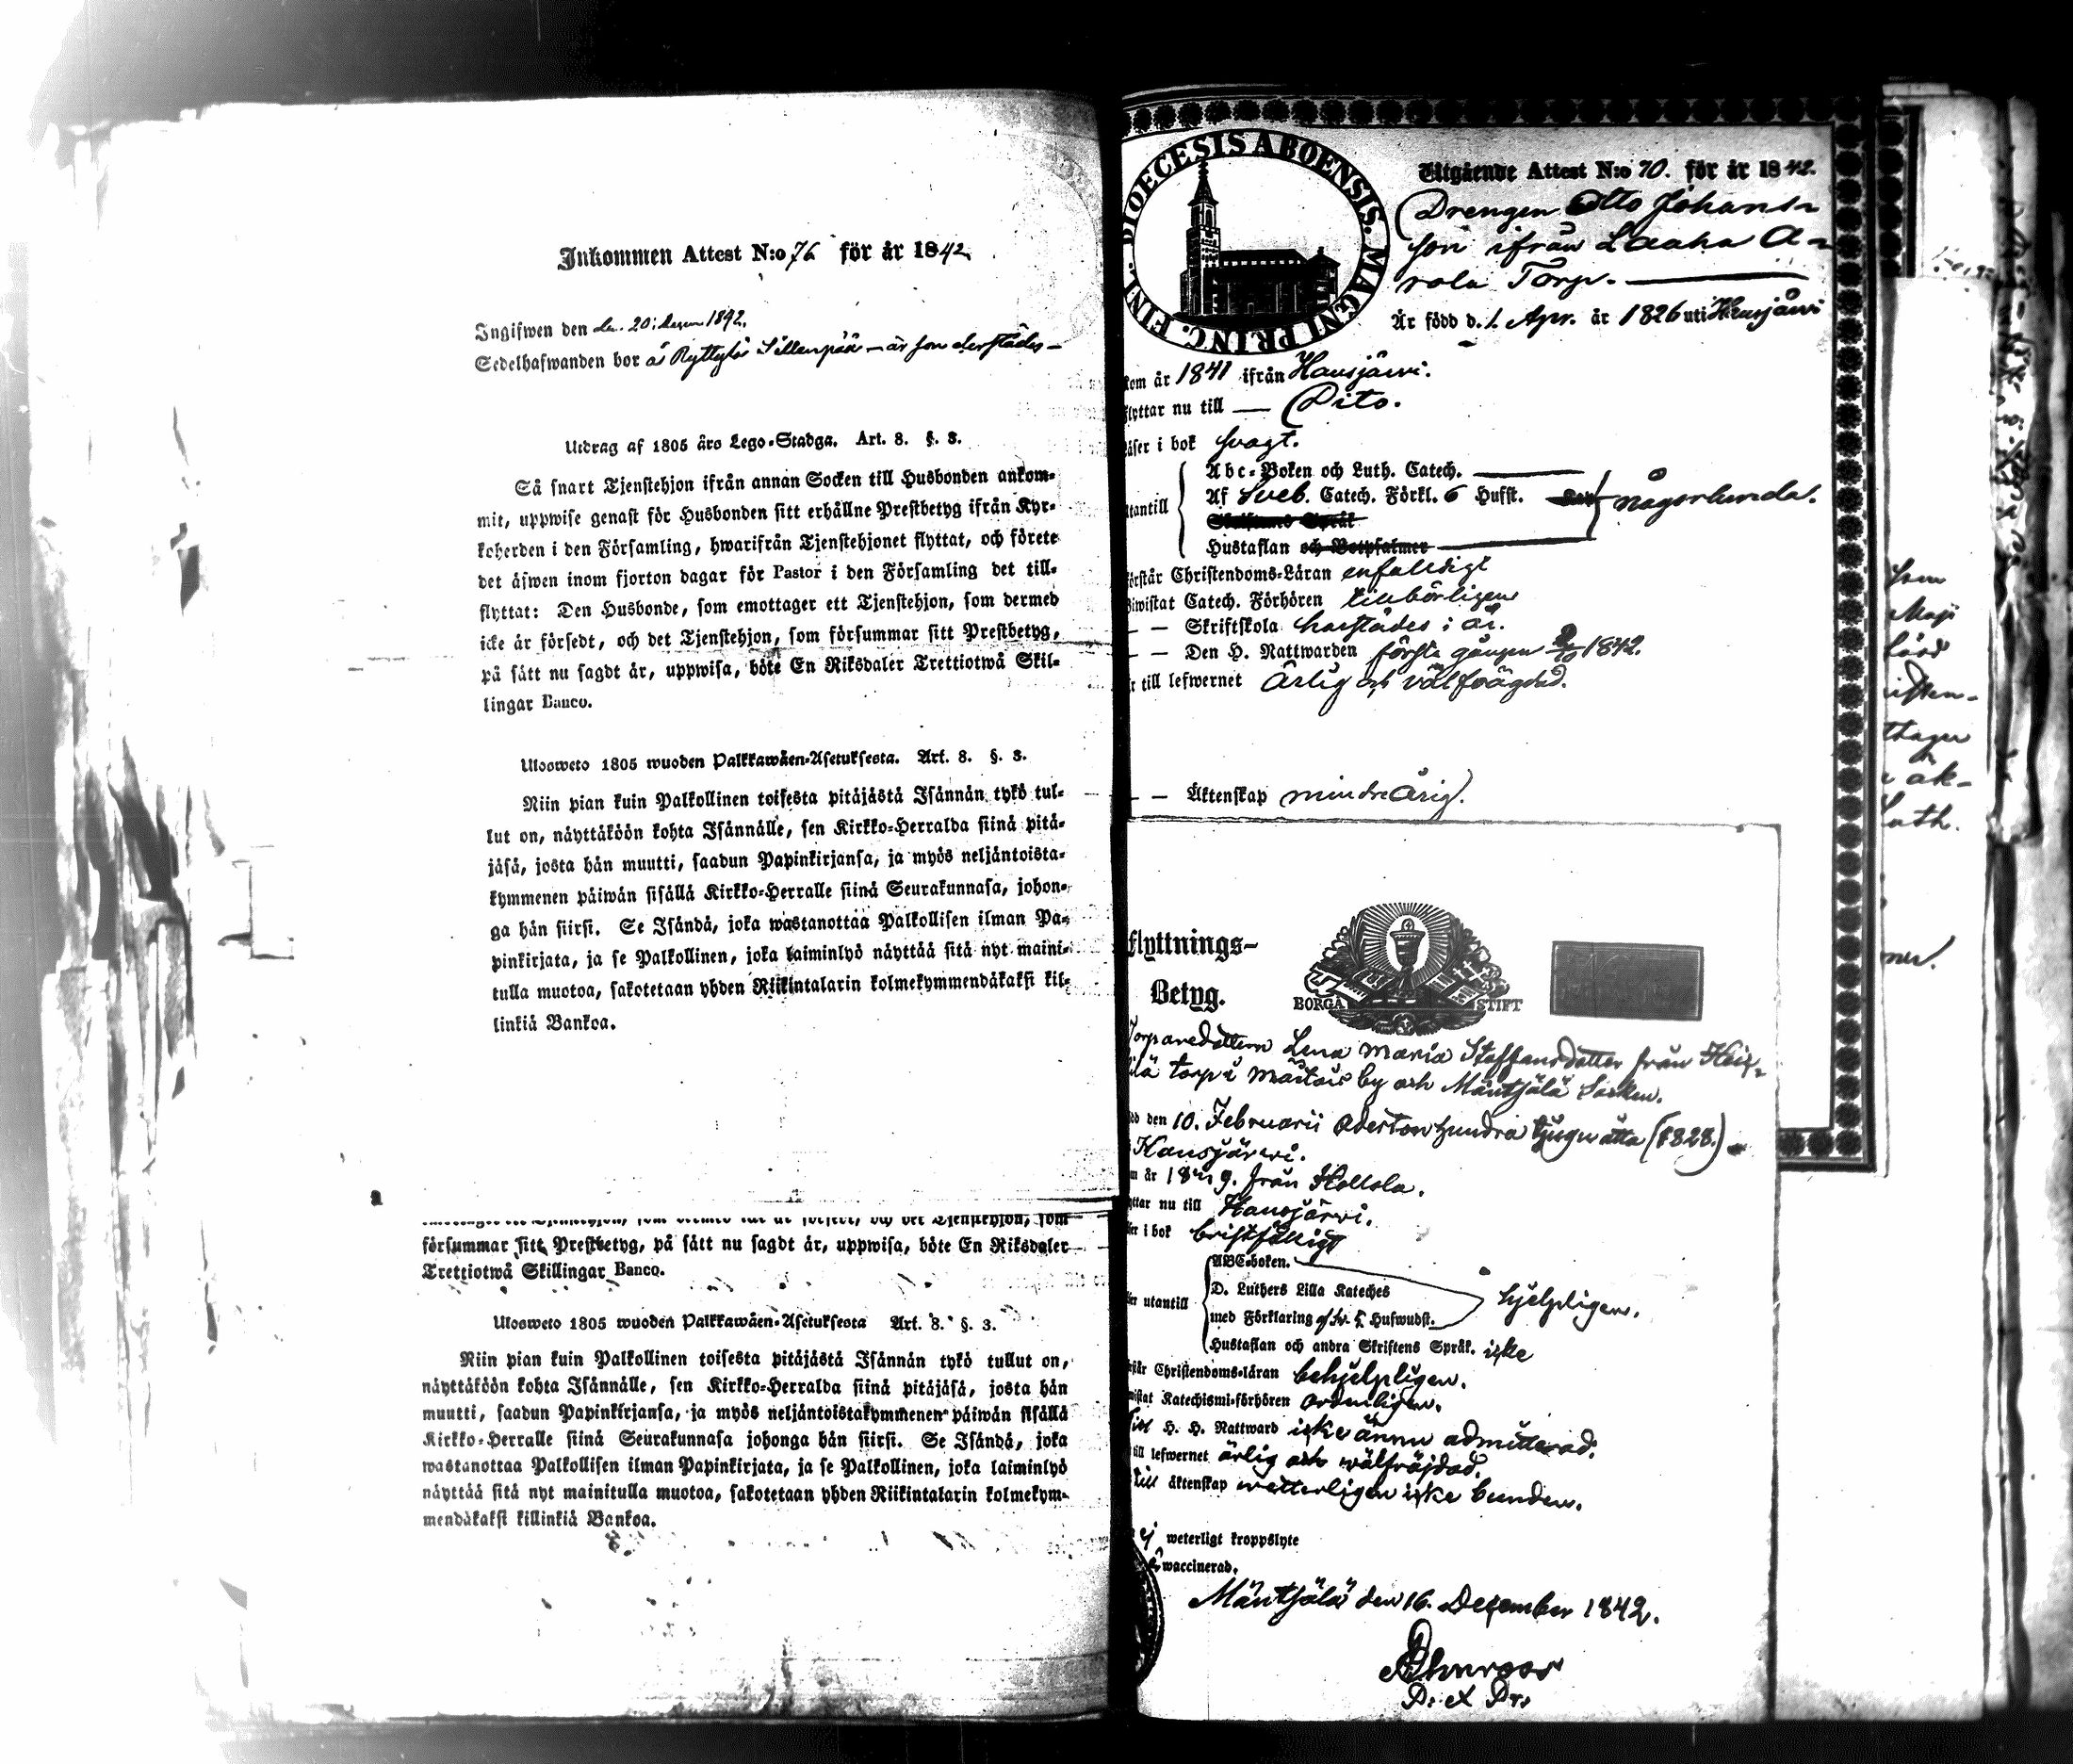 Inkommen Attest N:o 76 för år 1842
Ingifwen den 20: 1842.
Sedelhafwanden bor å Ryttylä Sillenpää – är son derstädes –
Utdrag af 1805 års Lego-Stadga. Art. 8. §. 3.
Så snart Tjenstehjon ifrån annan Socken till Husbonden ankom-
mit, uppwise genast för Husbonden sitt erhållne Prestbetyg ifrån Kyr-
koherden i den Församling, hwarifrån Tjenstehjonet flyttat, och förete
det äfwen inom fjorton dagar för Pastor i den Församling det till-
flyttat: Den Husbonde, som emottager ett Tjenstehjon, som dermed
icke är försedt, och det Tjenstehjon, som försummar sitt Prestbetyg,
på sätt nu sagdt är, uppwisa, böte En Riksdaler Trettiotwå Skil-
lingar Banco.
Ulosweto 1805 wuoden Palkkawäen-Asetuksesta. Art. 8. §. 3.
Niin pian kuin Palkollinen toisesta pitäjästä Isännän tykö tul-
lut on, näyttäköön kohta Isännälle, sen Kirkko-Herralda siinä pitä-
jäsä, josta hän muutti, saadun Papinkirjansa, ja myös neljäntoista-
kymmenen päiwän sisällä Kirkko-Herralle siinä Seurakunnasa, johon-
ga hän siirsi. Se Isändä, joka wastanottaa Palkollisen ilman Pa-
pinkirjata, ja se Palkollinen, joka laiminlyö näyttää sitä nyt maini-
tulla muotoa, sakotetaan yhden Riikintalarin kolmekymmendäkaksi kil-
linkiä Bankoa.
försummar sitt Prestbetyg, på sätt nu sagdt är, uppwisa, böte En Riksdaler
Trettiotwå Skillingar Banco.
Ulosweto 1805 wuoden Palkkawäen-Asetuksesta Art. 8. §. 3.
Niin pian kuin Palkollinen toisesta pitäjästä Isännän tykö tullut on,
näyttäköön kohta Isännälle, sen Kirkko-Herralda siinä pitäjäsä, josta hän
muutti, saadun Papinkirjansa, ja myös neljäntoistakymmenen päiwän sisällä
Kirkko-Herralle siinä Seurakunnasa johonga hän siirsi. Se Isändä, joka
wastanottaa Palkollisen ilman Papinkirjata, ja se Palkollinen, joka laiminlyö
näyttää sitä nyt mainitulla muotoa, sakotetaan yhden Riikintalarin kolmekym-
mendäkaksi killinkiä Bankoa.
DIOECESIS ABOENSIS. MAGNI PRINC. FINL.
Utgående Attest N:o 70. för år 1842.
Drengen Otto Johans-
son ifrån Laaha A-
rola Torp.
Är född d. 1. Apr. år 1826 uti Hausjärwi
kom år 1841 ifrån Hausjärwi.
flyttar nu till — Dito.
läser i bok svagt.
utantill
Abc-Boken och Luth. Catech.
Af Sveb. Catech. Förkl. 6 Hufst. någorlunda.
Skriftens Språk
Hustaflan och Botpsalmer
förstår Christendoms-Läran enfaldigt
biwistat Catech. Förhören tillbörligen
— — Skriftskola härstädes i år.
— — Den H. Nattwarden första gången 1842.
är till lefwernet Ärlig och välfrägdad.
— — Äktenskap minderårig.
Flyttnings-
Betyg.
BORGÅ STIFT
Torparedottern Lena Maria Staffansdotter från Hei-
lä torp i Maitois by och Mäntsälä Socken.
född den 10. Februarii Aderton hundra tjugu åtta (1828.)
i Hausjärwi.
kom år 1849. från Hollola.
flyttar nu till Hausjärwi.
läser i bok bristfälligt
ABC-boken.
D. Luthers Lilla Kateches
utantill hjelpligen.
med Förklaring af Sv. 5 Hufwudst.
Hustaflan och andra Skriftens Språk. icke
förstår Christendoms-läran behjelpligen.
biwistat Katechismi-förhören ordentligen.
till H. H. Nattward icke ännu admitterad.
till lefwernet ärlig och wälfräjdad.
till äktenskap wetterligen icke bunden.
ej weterligt kroppslyte
waccinerad.
Mäntsälä den 16. December 1842.